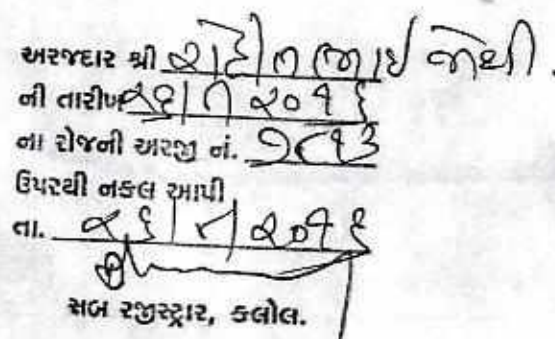 અરજદાર શ્રી રોહીતભાઈ જોષી.
ની તારીખ ૨૬ | ૨૦૧૬
ના રોજની અરજી નં.
ઉપરથી નકલ આપી
તા. ૨૬ | ૨૦૧૬
સબ રજીસ્ટ્રાર, કલોલ.